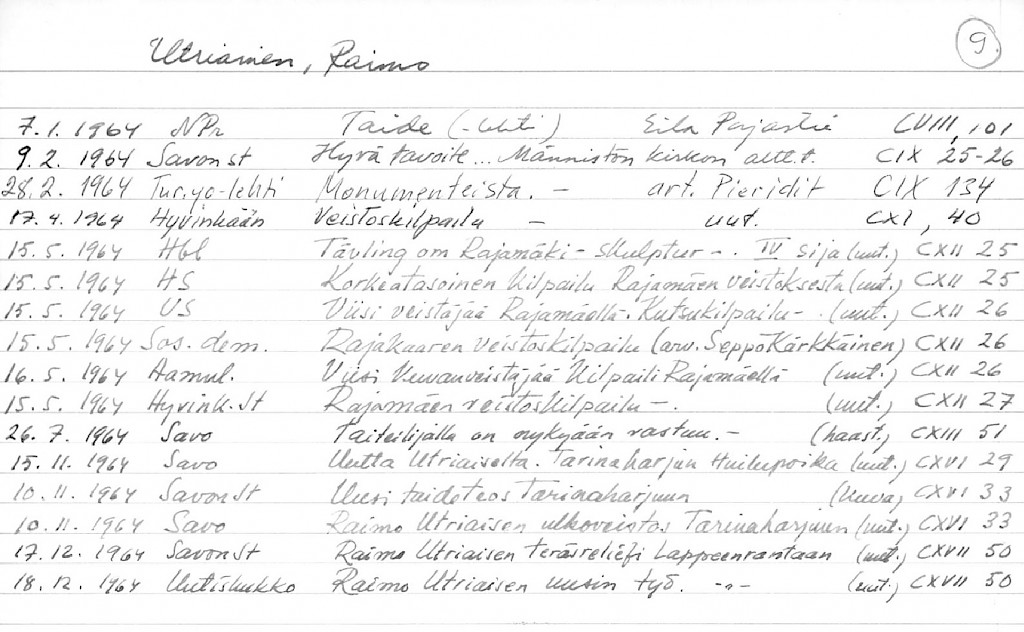 Utriainen, Raimo 9.
7.1.1964 NPr Taide (-lehti) Eila Pajastie CVIII, 101
9.2. 1964 Savon st Hyvä tavoite... Männistön kirkon altt.t. CIX 25-26
28.2. 1964 Tur.yo-lehti Monumenteista. - art. Pieridit CIX 134
17.4.1964 Hyvinkään Veistoskilpailu - uut. CXI, 40
15.5.1964 Hbl Tävling om Rajamäki-skulptur-. IV sija (uut.) CXII 25
15.5.1964 HS Korkeatasoinen kilpailu Rajamäen veistoksesta (uut.) CXII 25
15.5. 1964 US Viisi veistäjää Rajamäellä. Kutsukilpailu-. (uut.) CXII 26
15.5.1964 Sos.dem. Rajakaaren veistoskilpailu (arv. Seppo Kärkkäinen) CXII 26
16.5. 1964 Aamul. Viisi kuvanveistäjää kilpaili Rajamäellä (uut.) CXII 26
15.5. 1964 Hyvink.st Rajamäen veistoskilpailu-. (uut.) CXII 27
26.7. 1964 Savo Taiteilijalla on nykyään vastuu.- (haast.) CXIII 51
15.11. 1964 Savo Uutta Utriaiselta. Tarinaharjun Huilupoika (uut.) CXVI 29
10.11. 1964 Savon st Uusi taideteos Tarinaharjuun (kuva) CXVI 33
10.11. 1964 Savo Raimo Utriaisen ulkoveistos Tarinaharjuun (uut.) CXVI 33
17.12. 1964 Savon st Raimo Utriaisen teräsreliefi Lappeenrantaan (uut.) CXVII 50
18.12. 1964 Uutiskukko Raimo Utriaisen uusin työ. -"- (uut.) CXVII 50